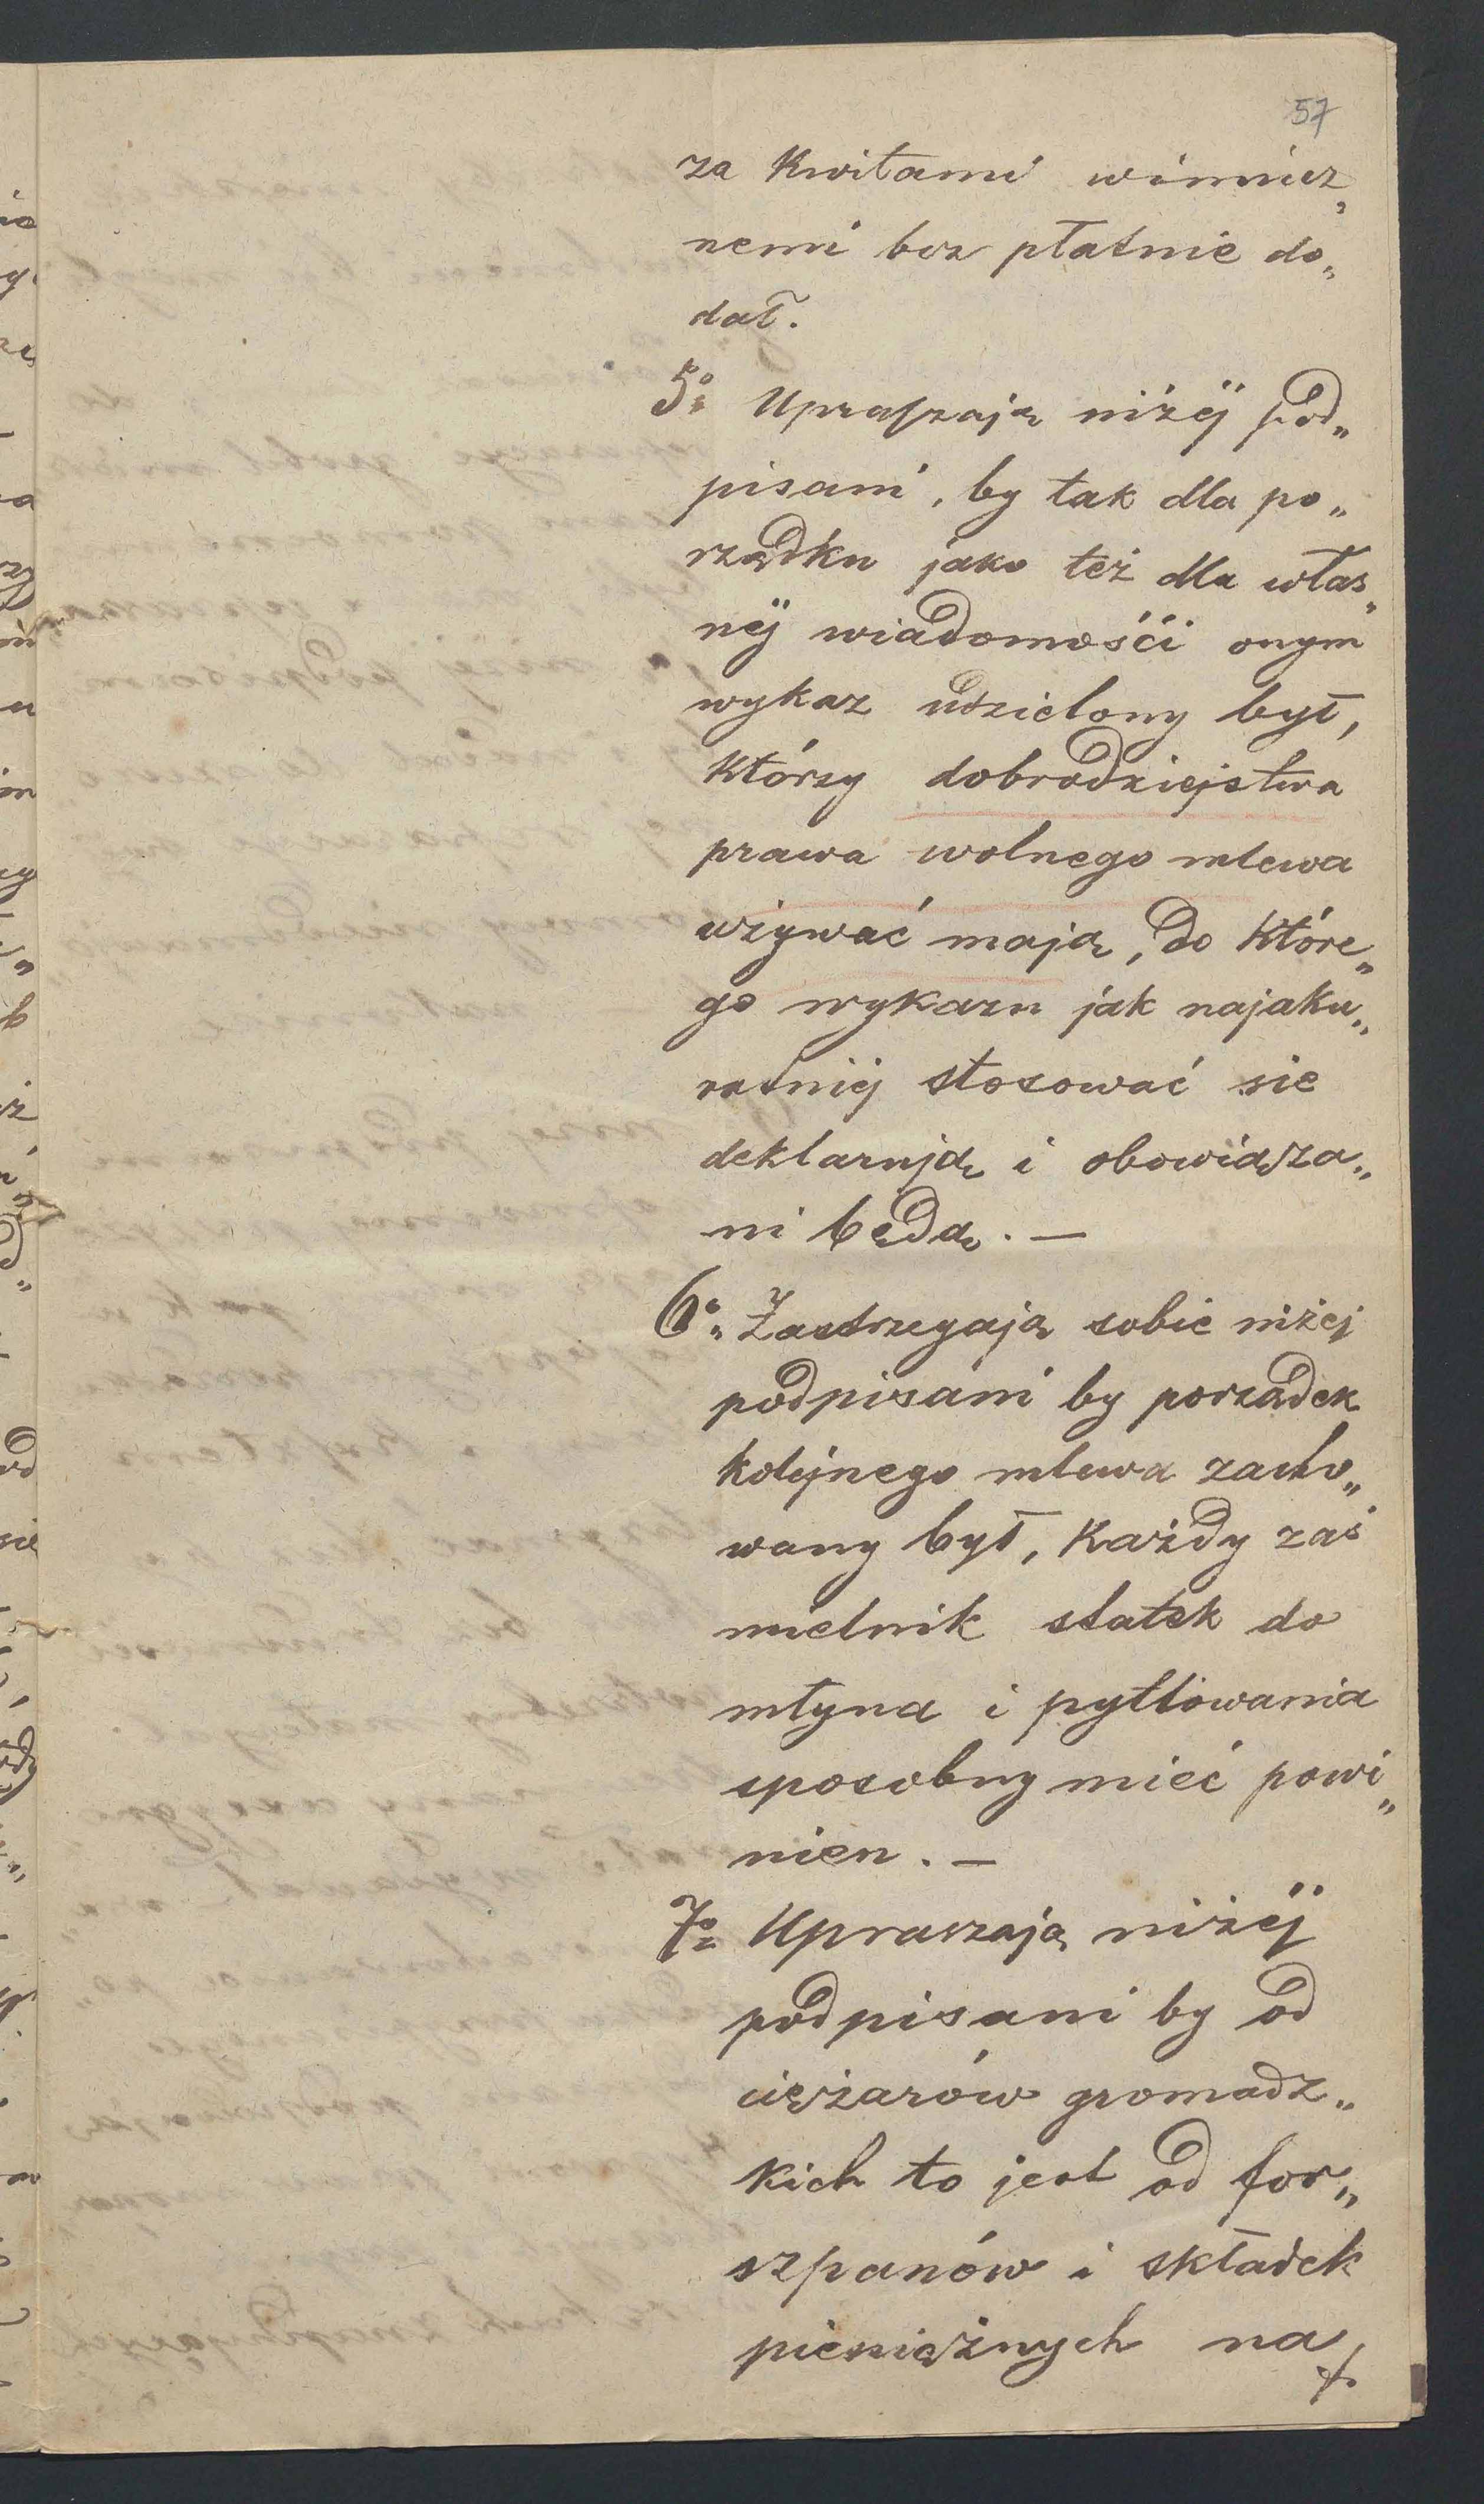 57
za Kwitami winnicz„
nemi bez płatnie do„
dał.
5o Upraszają niżéj pod„
pisani, by tak dla po„
rządku jako też dla włas„
néj wiadomośći onym
wykaz udzielony był,
Którzy dobrodziejstwa
prawa wolnego mlewa
używać mają, do Które„
go wykazu jak najaku„
ratniej stosować sie
deklarują i obowiąza„
ni będą. —
6o Zastrzegają sobie niżej
podpisani by porządek
kolejnego mlewa zacho„
wany był, Każdy zaś
mielnik statek do
młyna i pytlowania
sposobny mieć powi„
nien. —
7o Upraszają niżéj
podpisani by od
ciężarów gromadz„
kich to jest od for„
szpanów i składek
pieniężnych na